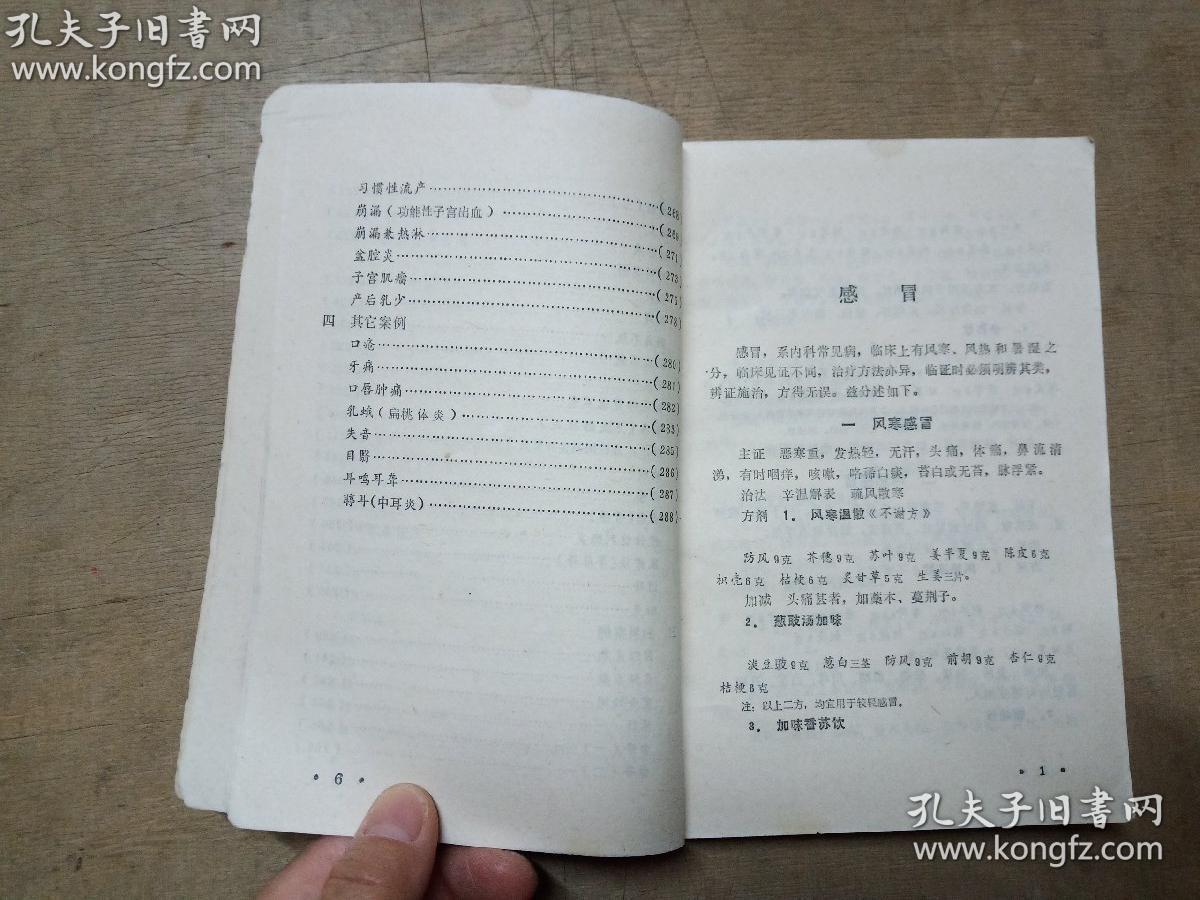 孔夫子旧书网
www.kongfz.com
习惯性流产……………………(268
崩漏（功能性子宫出血）……………………(269
崩漏兼热淋……………………(271
盆腔炎……………………(273
子宫肌瘤……………………(275
产后乳少……………………(278
四 其它案例
口疮……………………(280)
牙痛……………………(281)
口唇肿痛……………………(282)
乳蛾（扁桃体炎）……………………(283)
失音……………………(285)
目翳……………………(286)
耳鸣耳聋……………………(287)
(中耳炎)……………………(288)
·6·
感 冒
感冒，系内科常见病，临床上有风寒、风热和暑湿之
分，临床见证不同，治疗方法亦异，临证时必须明辨其类，
辨证施治，方得无误。兹分述如下。
一 风寒感冒
主证 恶寒重，发热轻，无汗，头痛，体痛，鼻流清
涕，有时咽痒，咳嗽，咯稀白痰，苔白或无苔，脉浮紧。
治法 辛温解表 疏风散寒
方剂 1. 风寒温散《不谢方》
防风9克 芥穗9克 苏叶9克 姜半夏9克 陈皮6克
枳壳6克 桔梗6克 炙甘草5克 生姜三片。
加减 头痛甚者，加藁本、蔓荆子。
2. 葱豉汤加味
淡豆豉9克 葱白三茎 防风9克 前胡9克 杏仁9克
桔梗6克
注：以上二方，均宜用于较轻感冒。
3. 加味香苏饮
·1·
孔夫子旧书网
www.kongfz.com